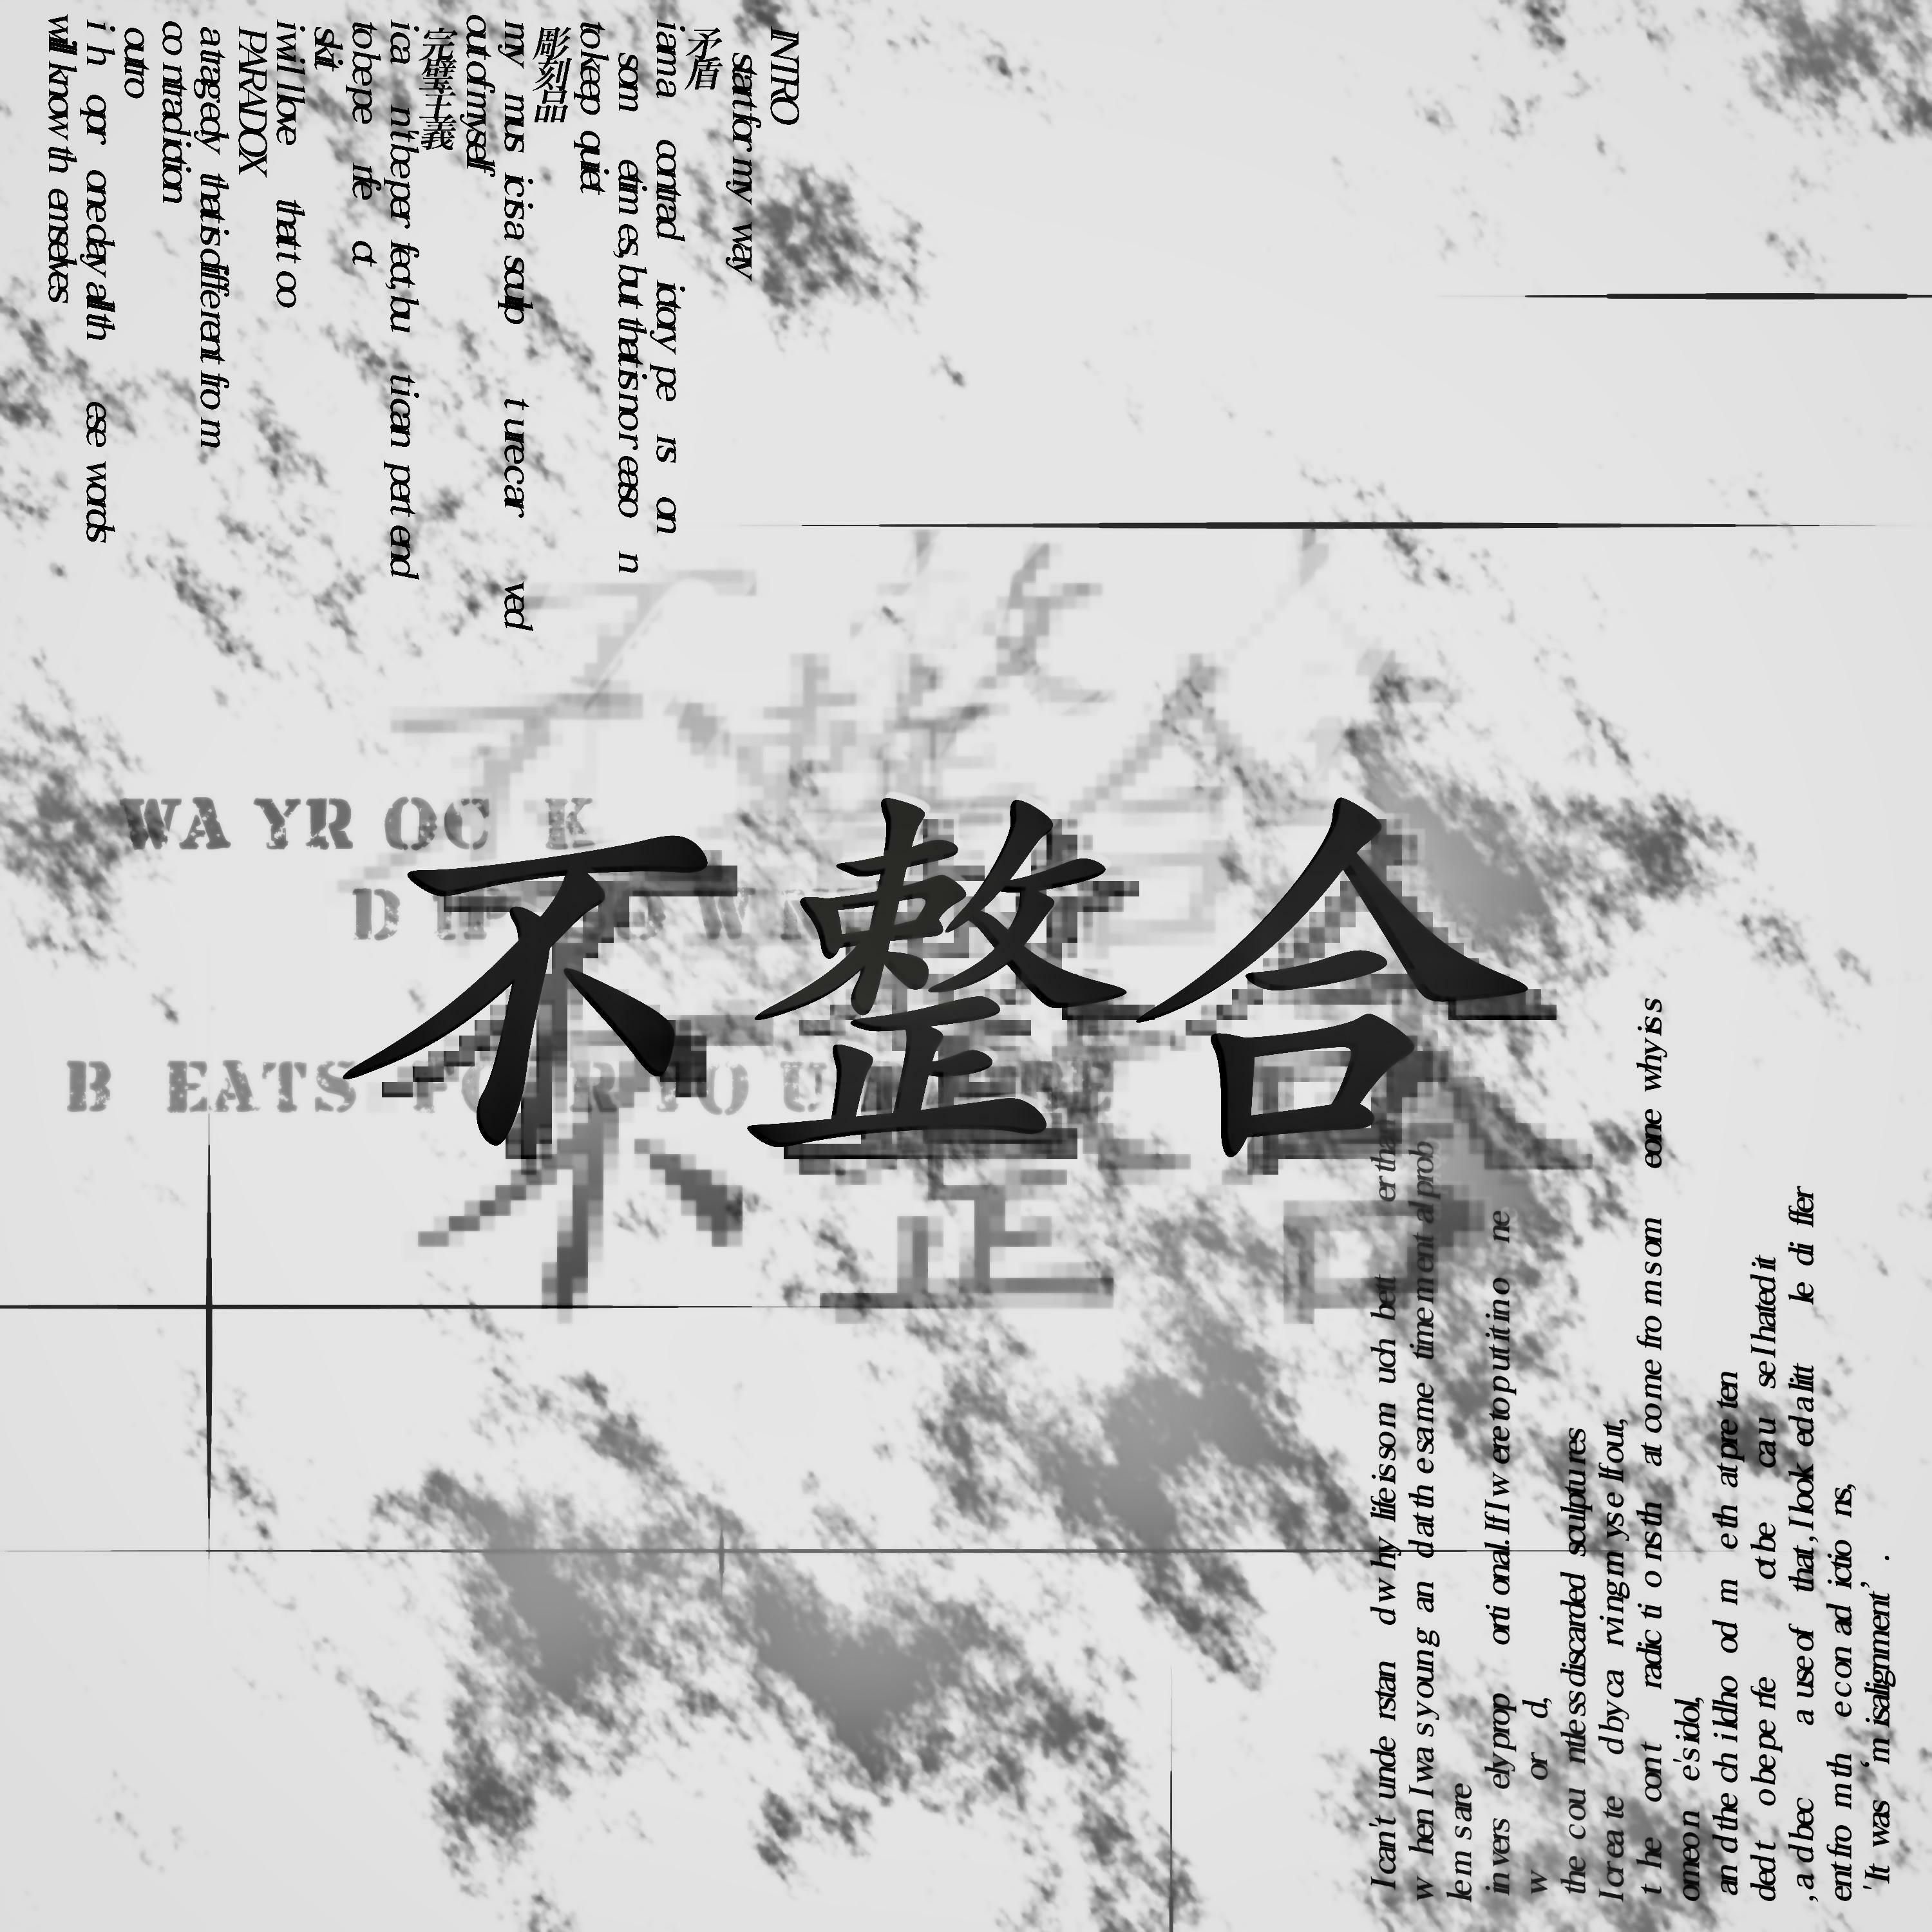 INTRO
start for my way
矛盾
i am a contradictory person
sometimes, but that is no reason
to keep quiet
彫刻品
my music is a sculpture carved
out of myself
完璧主義
i can't be perfect, but i can pertend
to be perfect
skit
i will love that too
PARADOX
a tragedy that is different from
contradiction
outro
i h opr one day all th ese words
will know themselves
WAYROCK
BEATS FOR YOU
不整合
I can't understand why life is so much better than
when I was young and at the same time mental prob
lems are
inversely proportional. If I were to put it in one
word,
the countless discarded sculptures
I create d by carving myself out,
the contradictions that come from someone why is s
omeone's idol,
and the childhood me that preten
ded to be perfect because I hated it
, ad because of that, I looked a little differ
ent from the conadictions,
'It was 'misalignment'.